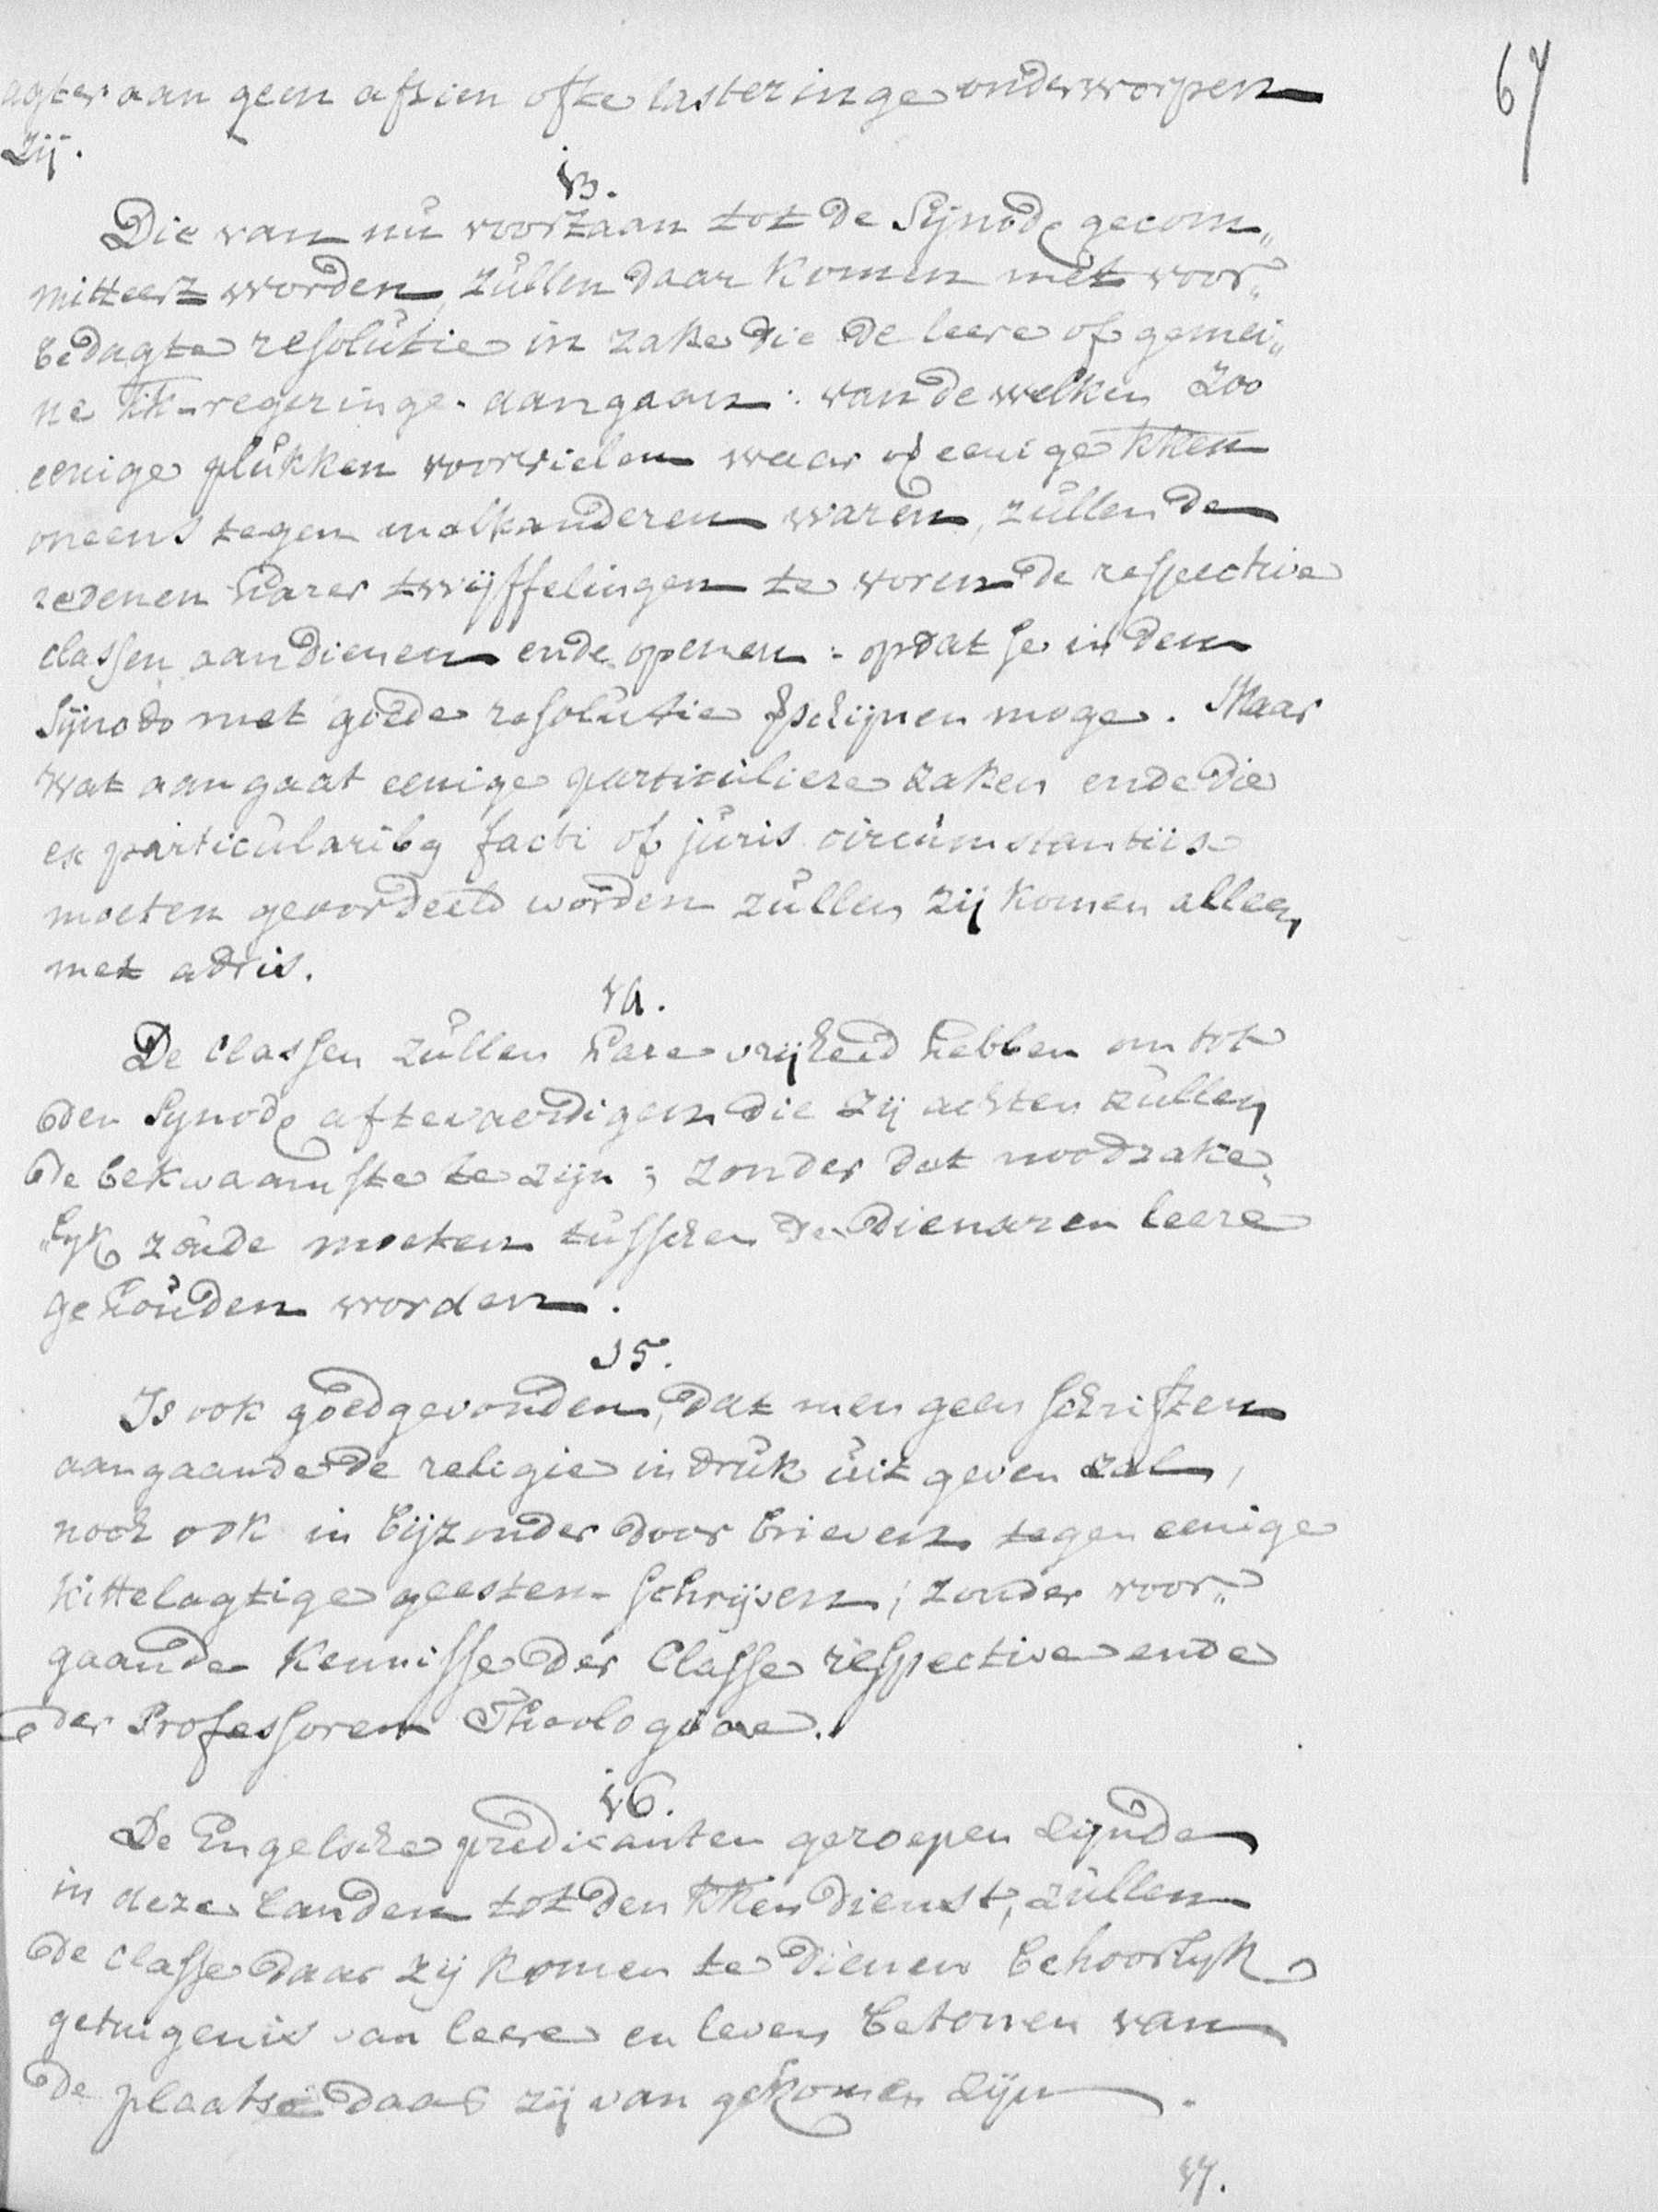 67
agter aan geen afsien ofte lasteringe onderworpen
zij.
13.
Die van nu voortaan tot de Sijnode gecom„
mitteert worden, zullen daar komen met voor„
bedagte resolutie in zake die de leere of gemei„
ne kk-regeringe aangaan: van dewelken zoo
eenige stukken voorvielen waar of eenige kken
oneens tegen malkanderen waren, zullen de
redenen harer twijffelingen te voren de respective
classen aandienen ende openen: opdat se in den
Sijnodo met goede resolutie verschijnen moge. Maar
wat aangaat eenige particuliere zaken ende die
ex particularibq facti of juris circumstantiis
moeten geoordeeld worden zullen zij komen alleen
met advis.
14.
De classen zullen hare vrijheid hebben om tot
den Synode aftevaerdigen die zij achten zullen
de bekwaamste te zijn; zonder dat noodzake„
„lyk zoude moeten tusschen de dienaren keere
gehouden worden.
15.
Is ook goedgevonden, dat men geen schriften
aangaande de religie in druk uitgeven zal,
noch ook in bijzonder door brieven tegen eenige
kittelagtige geesten schrijven, zonder voor„
gaande kennisse der Classe respective ende
der Professoren Theologiae.
16.
De Engelsche predicanten geroepen zijnde
in deze landen tot den kken dienst, zullen
de classe daar zij komen te dienen behoorlyk
getuigenis van leere en leven betonen van
de plaatse daar zij van gekomen zijn.
17.